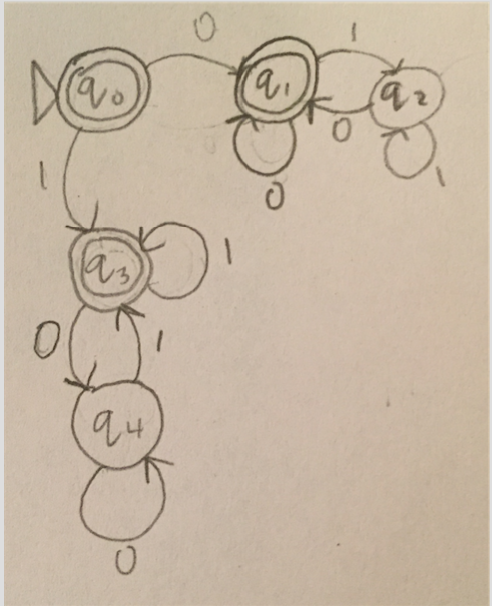 0
1
q0
q1
q2
0
1
0
1
q3
1
0
1
q4
0